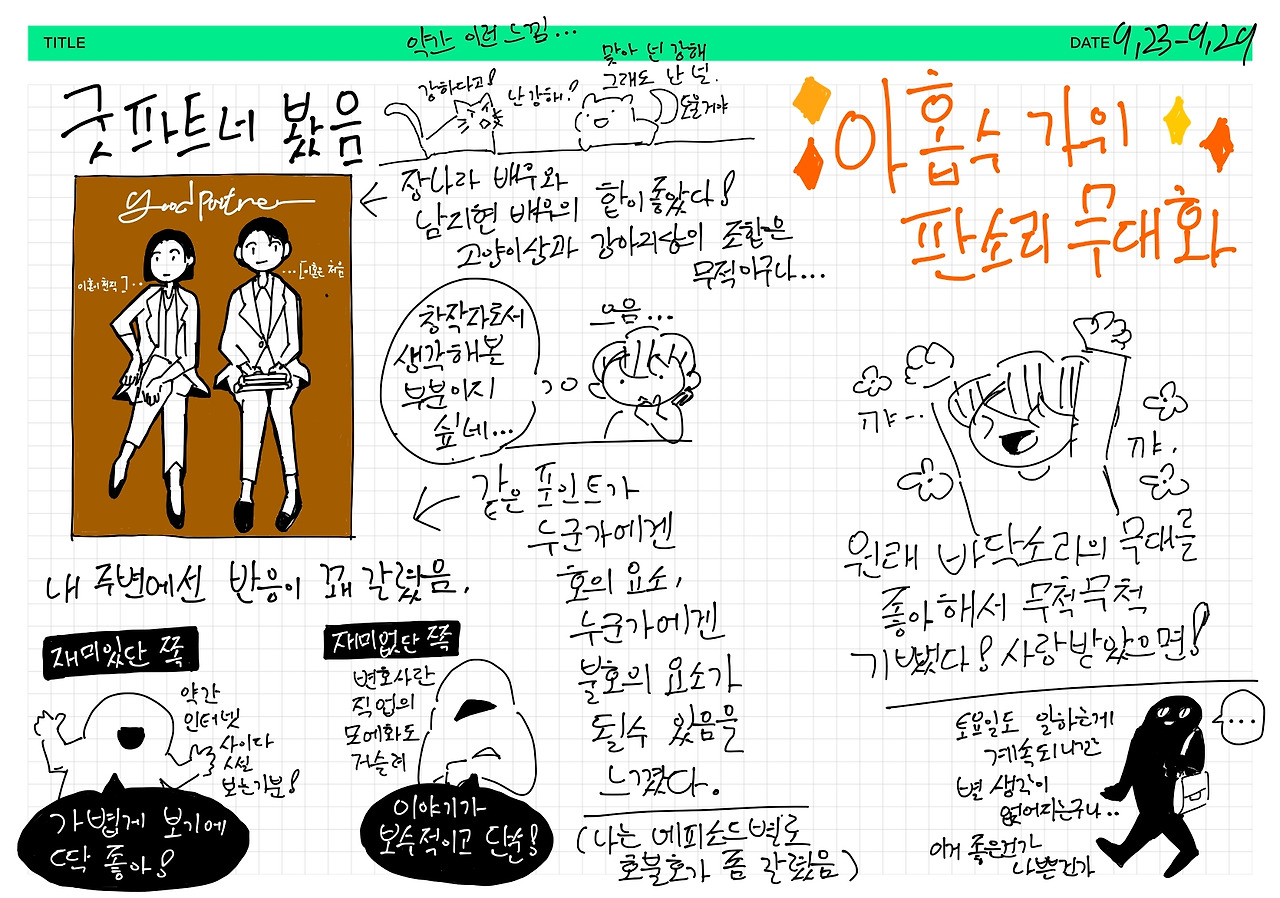 TITLE
DATE 9.23-9.29
약간 이런 느낌...
굿파트너 봤음
강하다고!
난 강해!
맞아 넌 강해
그래도 난 널
도울거야
good partner
이혼이 천직]...
...[이혼은 처음
← 장나라 배우와
남지현 배우의 합이 좋았다!
고양이상과 강아지상의 조합은
무적이구나...
창작자로서
생각해볼
부분이지
싶네...
으음...
← 같은 포인트가
누군가에겐
호의 요소,
누군가에겐
불호의 요소가
될수 있음을
느꼈다.
(나는 에피소드별로
호불호가 좀 갈렸음)
내 주변에선 반응이 꽤 갈렸음.
재미있단 쪽
약간
인터넷
사이다
썰
보는기분!
가볍게 보기에
딱 좋아!
재미없단 쪽
변호사란
직업의
모에화도
거슬려
이야기가
보수적이고 단순!
아홉수 가위
판소리 무대화
꺄--
꺄.
원래 바닥소리의 무대를
좋아해서 무척무척
기뻤다! 사랑받았으면!
토요일도 일하는게
계속되니간
별 생각이
없어지는구나..
이게 좋은건가
나쁜건가
...